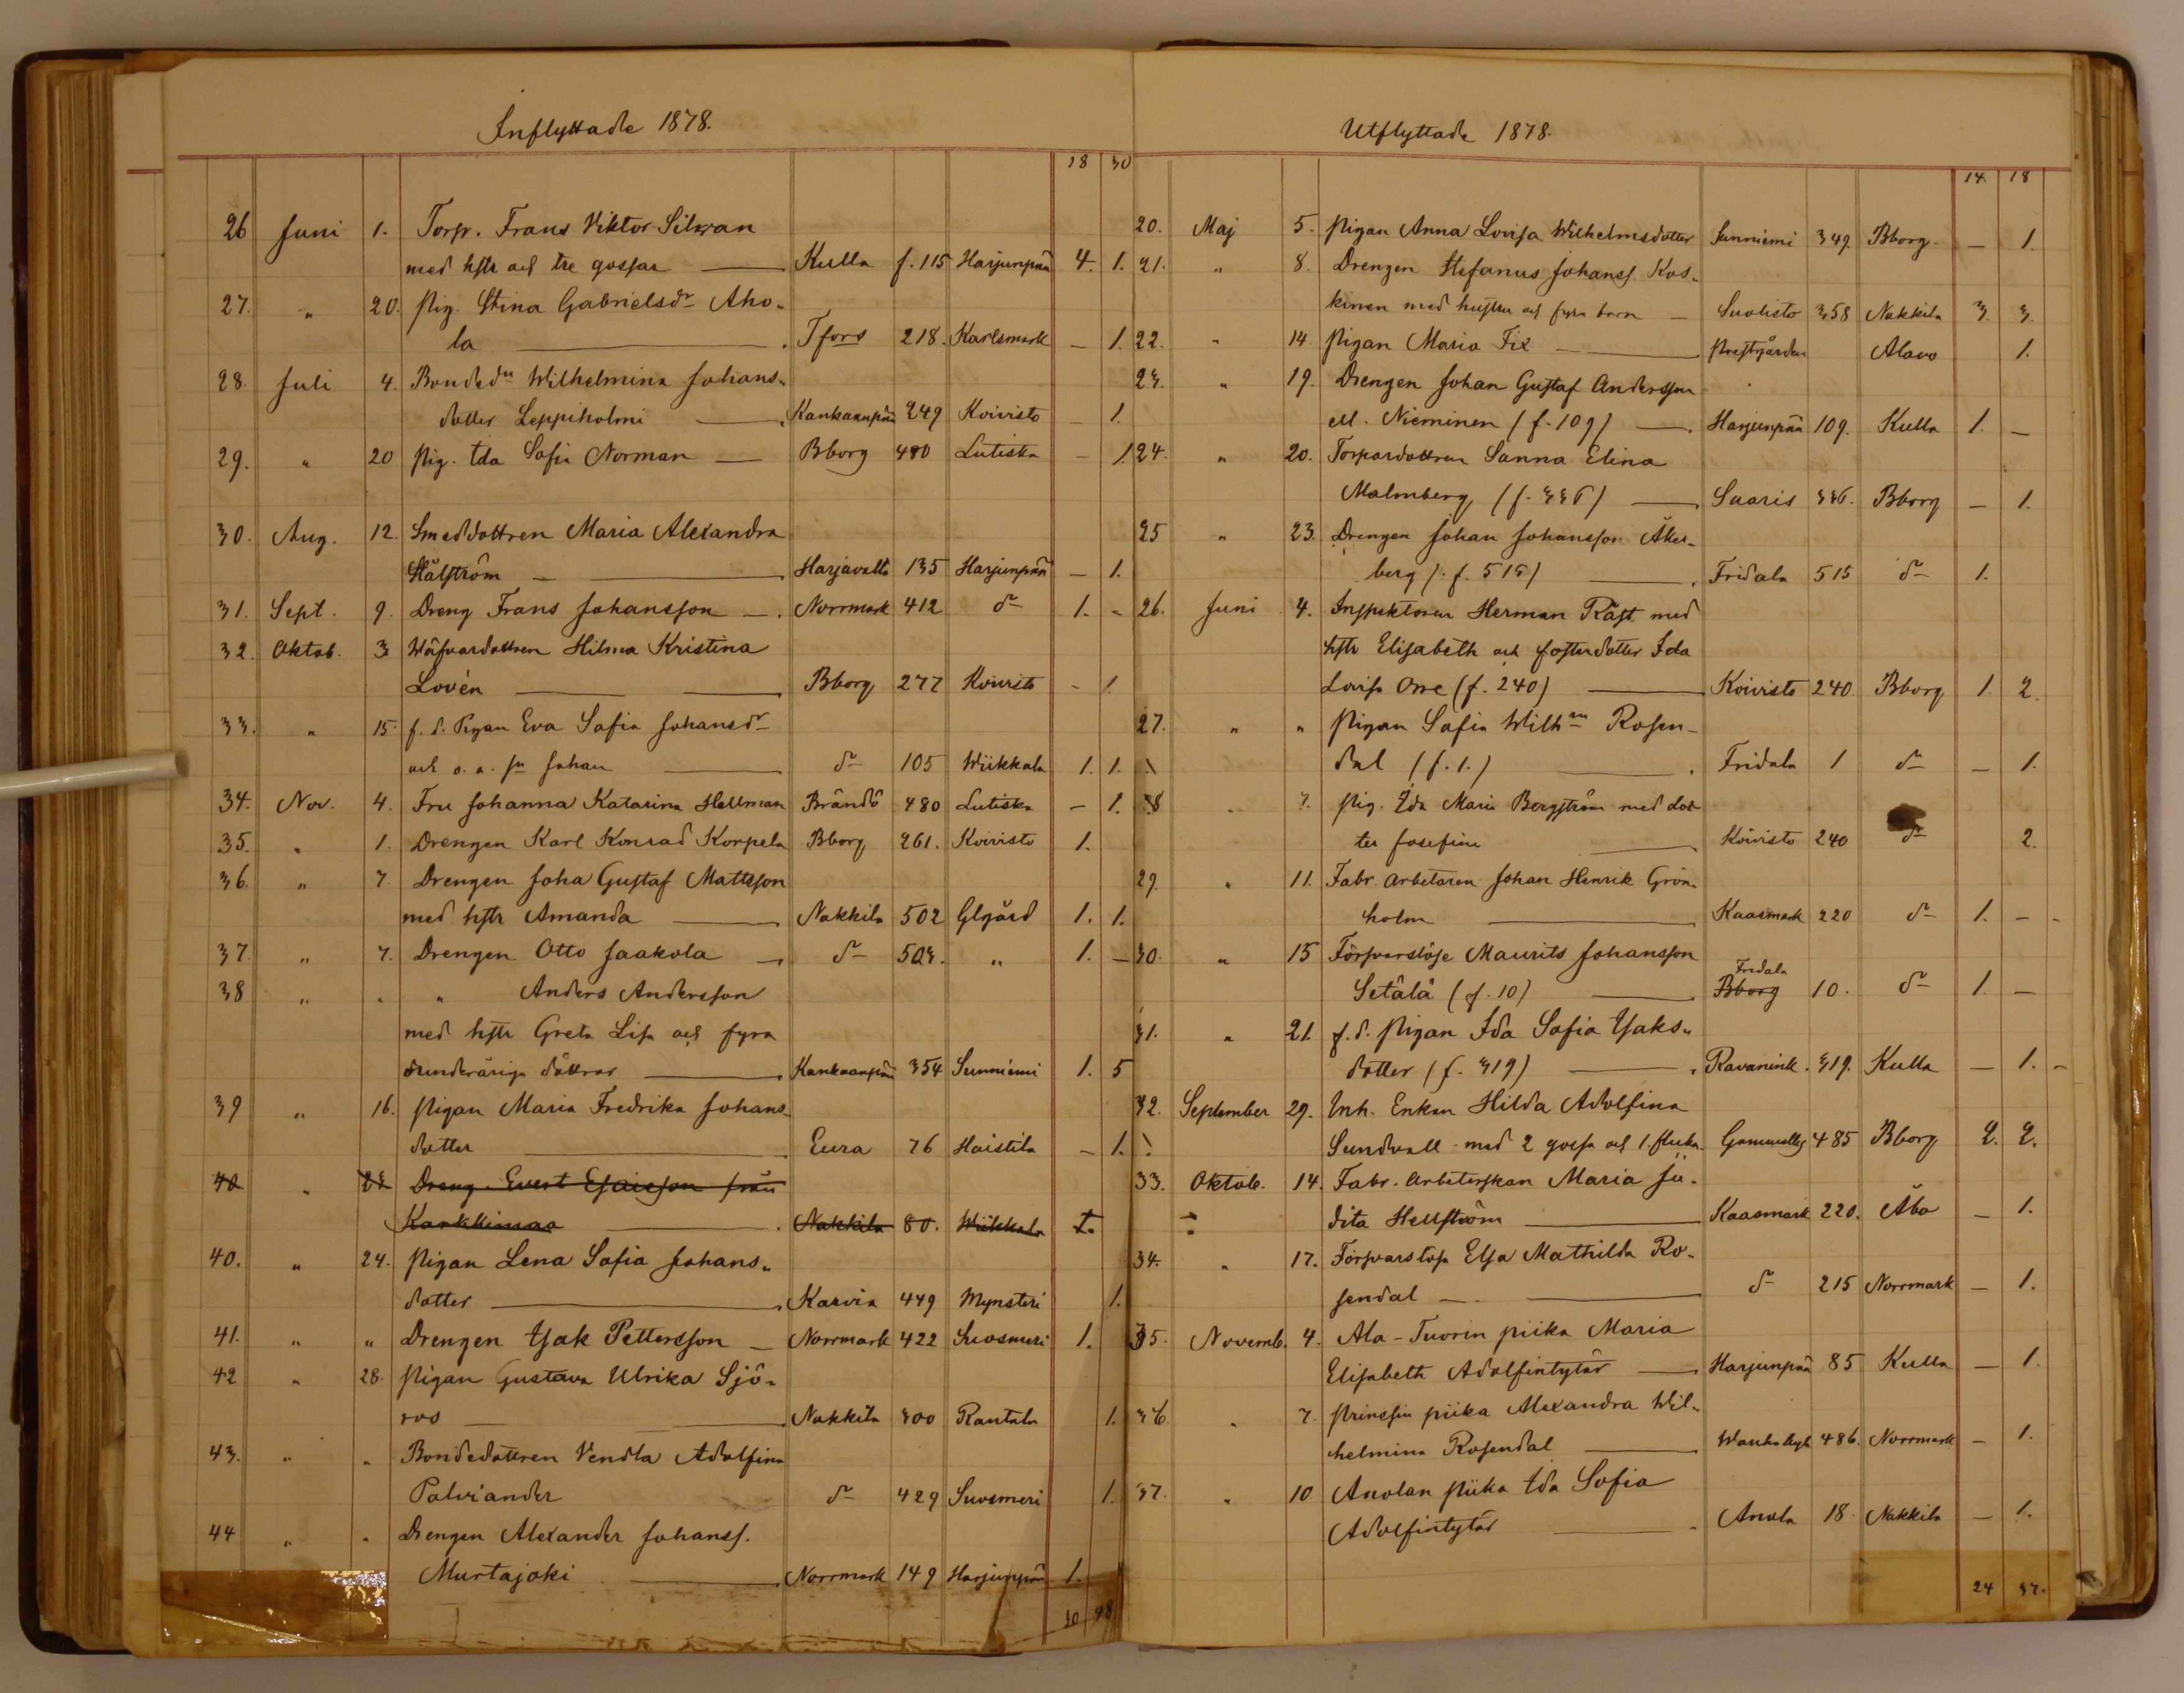 Inflyttade 1878.
18 30
26 Juni 1. Torp. Frans Viktor Silvan
med hstr och tre gossar — Kulla f. 115 Harjunpää 4. 1.
27. " 20. Pig. Stina Gabrielsdr Aho-
la — Tfors 218. Karlsmark — 1.
28. Juli 4. Bondedn Wilhelmina Johans-
dotter Leppiholmi — Kankaanpää 249 Koivisto 1.
29. " 20 Pig. Ida Sofia Norman — Bborg 480 Lutiska — 1.
30. Aug. 12. Smeddottren Maria Alexandra
Hälström — Harjavalta 135 Harjunpää — 1.
31. Sept. 9. Dreng Frans Johansson — Norrmark 412 dr 1. -
32. Oktob. 3 Wäfvardottren Hilma Kristina
Lovén — Bborg 277 Koivisto - 1.
33. " 15. f. d. Pigan Eva Sofia Johansdr
och o. ä. sn Johan — dr 105 Wiikkala 1. 1.
34. Nov. 4. Fru Johanna Katarina Hellman Brändö 480 Lutiska — 1.
35. " 1. Drengen Karl Konrad Korpela Bborg 261. Koivisto 1.
36. " 7. Drengen Joha Gustaf Mattsson
med hstr Amanda — Nakkila 502 Glgård 1. 1.
37. " 7. Drengen Otto Jaakola — dr 503. " 1. —
38 " " " Anders Andersson
med hstr Greta Lisa och fyra
underåriga döttrar — Kankaanpää 354 Sunniemi 1. 5
39 " 16. Pigan Maria Fredrika Johans-
dotter — Eura 76 Haistila — 1.
40. " 23 Dreng. Evert Esaisson från
Karkkimaa — Nakkila 80. Wiikkala 1.
40. " 24. Pigan Lena Sofia Johans-
dotter — Karvia 449 Mynsteri 1.
41. " " Drengen Isak Pettersson — Norrmark 422 Suosmeri 1.
42 " 28. Pigan Gustava Ulrika Sjö-
roo — Nakkila 300 Rantala 1.
43. " " Bondedottren Vendla Adolfina
Palviander dr 429 Suosmeri 1.
44 " " Drengen Alexander Johanss.
Murtajoki — Norrmark 149 Harjunpää 1.
30 48
Utflyttade 1878.
14. 18
20. Maj 5. Pigan Anna Lovisa Wilhelmsdotter Sunniemi 349 Bborg — 1.
21. " 8. Drengen Stefanus Johanss. Kos-
kinen med hustru och fyra barn — Suolisto 358 Nakkila 3. 3.
22. " 14. Pigan Maria Fix — Prestgården Alavo 1.
23. " 19. Drengen Johan Gustaf Andersson
ell. Nieminen (f. 109) — Harjunpää 109. Kulla 1. —
24. " 20. Torpardottren Sanna Elina
Malmberg (f. 336) — Saaris 336. Bborg — 1.
25 " 23. Drengen Johan Johansson Åker-
berg (f. 515) — Fridala 515 dr 1.
26. Juni 4. Inspektoren Herman Räft med
hstr Elisabeth och fosterdotter Ida
Lovisa Orre (f. 240) — Koivisto 240. Bborg 1. 2.
27. " " Pigan Sofia Wilhna Rosen-
dal (f. 1.) — Fridala 1 dr — 1.
28 " 7. Pig. Ida Maria Bergström med dot-
ter Josefina — Koivisto 240 dr 2.
29. " 11. Fabr. arbetaren Johan Henrik Grön-
holm — Kaasmark 220 dr 1. —
30. " 15 Försvarslöse Maurits Johansson
Setälä (f. 10) — Bborg Fridala 10. dr 1. —
31. " 21. f. d. Pigan Ida Sofia Isaks-
dotter (f. 319) — Ravanink. 319. Kulla — 1.
32. September 29. Inh. Enkan Hilda Adolfina
Sundvall med 2 gossa och 1. flicka 485 Bborg 2. 2.
33. Oktob. 14. Fabr. Arbeterskan Maria Ju-
dita Hellström — Kaasmark 220. Åbo — 1.
34. " 17. Försvarslösa Elsa Mathilda Ro-
sendal — dr 215 Norrmark — 1.
35. Novemb. 4. Ala-Tuorin piika Maria
Elisabeth Adolfintytär — Harjunpää 85 Kulla — 1.
36. " 7. Prinssin piika Alexandra Wil-
helmina Rosendal — 486. Norrmark — 1.
37. " 10 Anolan Piika Ida Sofia
Adolfintytär — Anola 18. Nakkila — 1.
24 37.